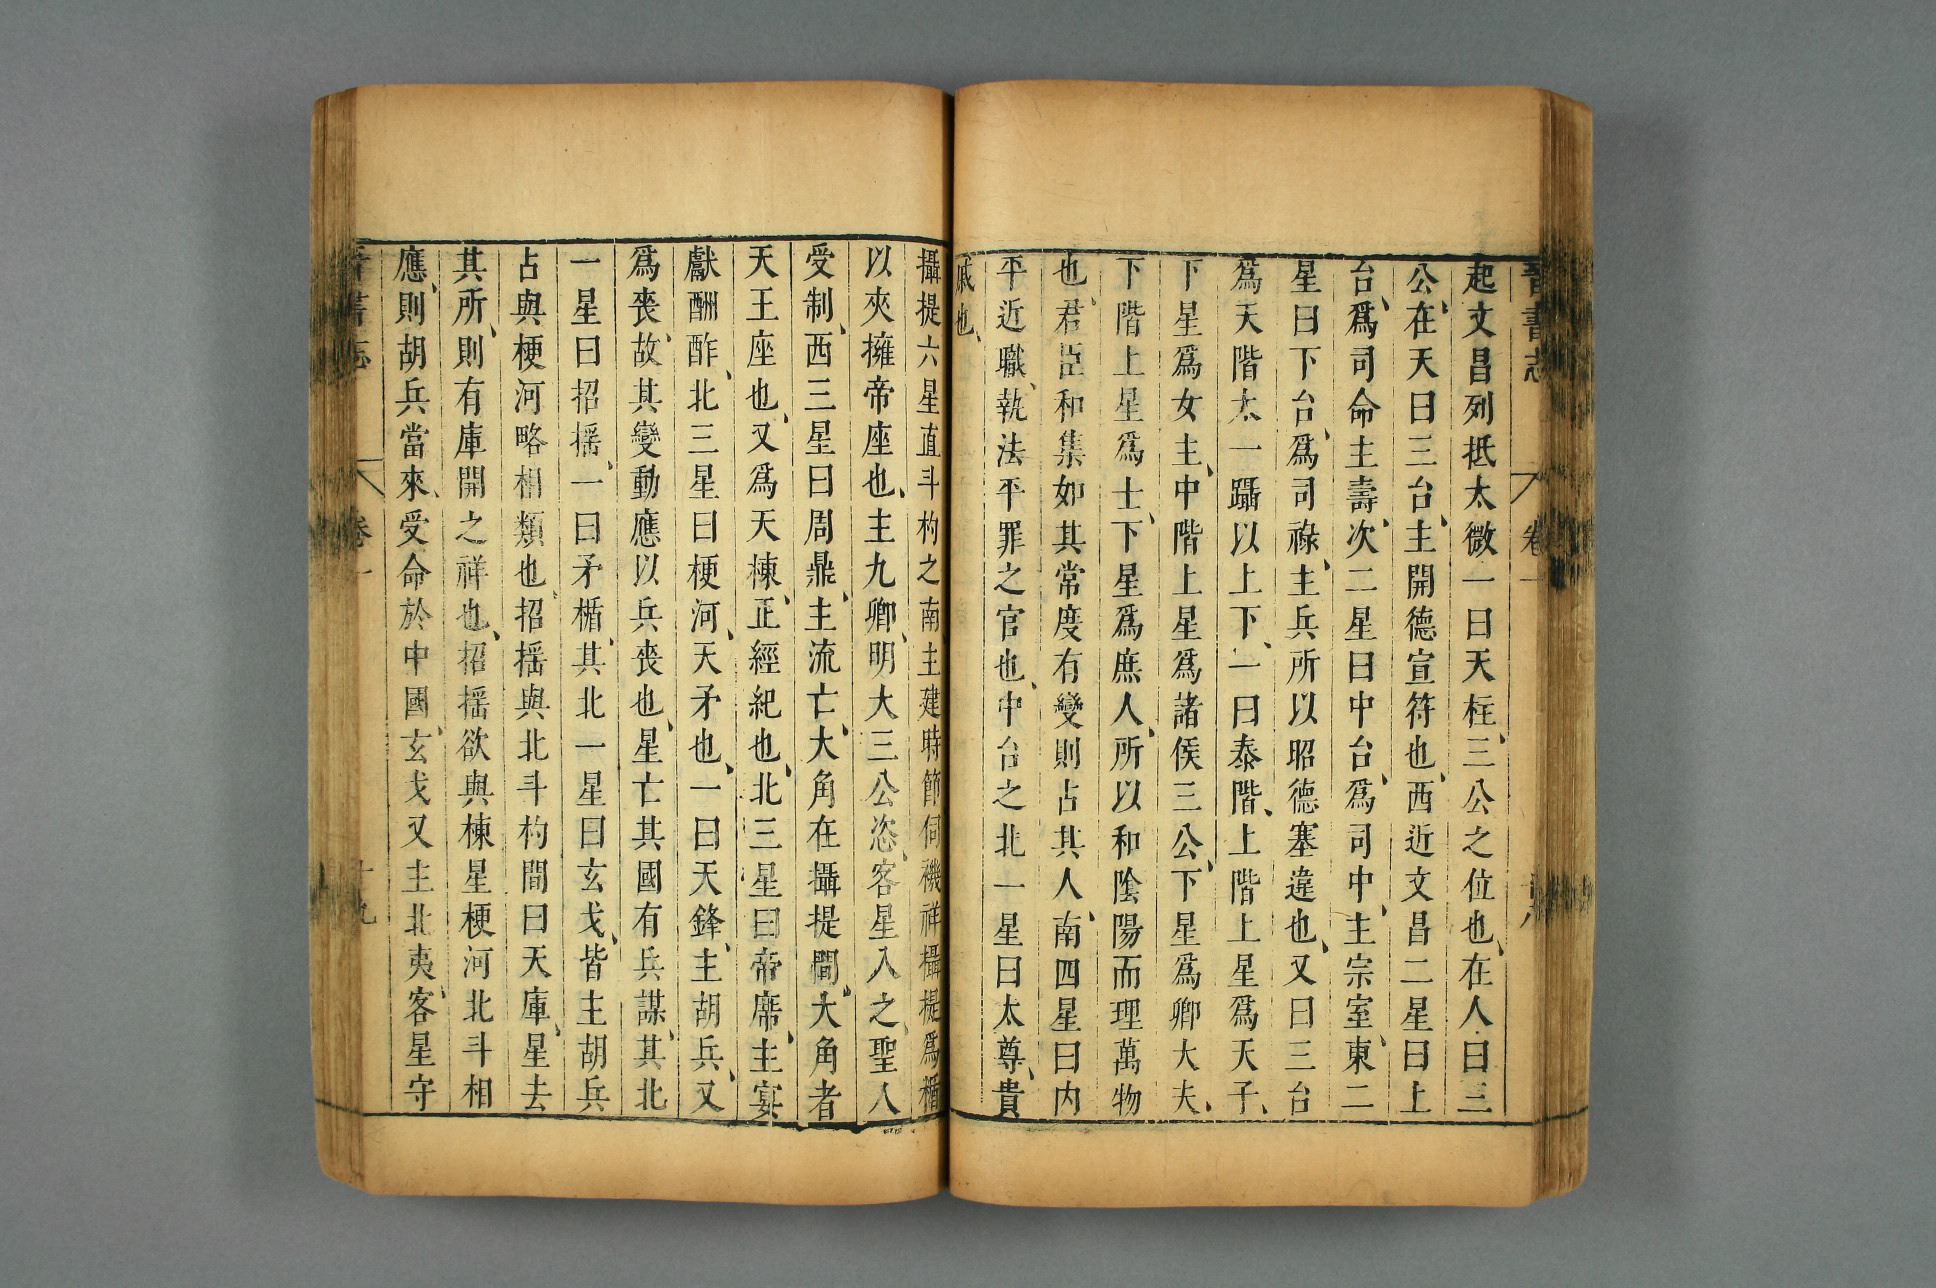 晉書志 卷一 十八
起文昌列抵太微一曰天柱三公之位也在人曰三
公在天曰三台主開德宣符也西近文昌二星曰上
台爲司命主壽次二星曰中台爲司中主宗室東二
星曰下台爲司祿主兵所以昭德塞違也又曰三台
爲天階太一躡以上下一曰泰階上階上星爲天子
下星爲女主中階上星爲諸侯三公下星爲卿大夫
下階上星爲士下星爲庶人所以和陰陽而理萬物
也君臣和集如其常度有變則占其人南四星曰内
平近職執法平罪之官也中台之北一星曰太尊貴
戚也
攝提六星直斗杓之南主建時節伺禨祥攝提爲楯
以夾擁帝座也主九卿明大三公恣客星入之聖人
受制西三星曰周鼎主流亡大角在攝提間大角者
天王座也又爲天棟正經紀也北三星曰帝席主宴
獻酬酢北三星曰梗河天矛也一曰天鋒主胡兵又
爲喪故其變動應以兵喪也星亡其國有兵謀其北
一星曰招搖一曰矛楯其北一星曰玄戈皆主胡兵
占與梗河略相類也招搖與北斗杓間曰天庫星去
其所則有庫開之祥也招搖欲與棟星梗河北斗相
應則胡兵當來受命於中國玄戈又主北夷客星守
晉書志 卷一 十九